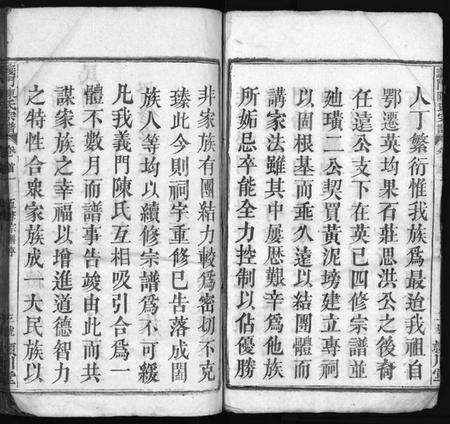 人丁繁衍惟我族爲最迨我祖自
鄂遷英均果石莊思洪公之後裔
任遠公支下在英已四修宗譜並
廸璜二公契買黃泥塝建立專祠
以固根基而垂久遠以結團體而
講家法雖其中屢歷艱辛爲他族
所妬忌卒能全力控制以佔優勝
非家族有團結力較爲密切不克
臻此今則祠宇重修已告落成闔
族人等均以續修宗譜爲不可緩
凢我義門陳氏互相吸引合爲一
體不數月而譜事告竣由此而共
謀家族之幸福以增進道德智力
之特性合衆家族成一大民族以